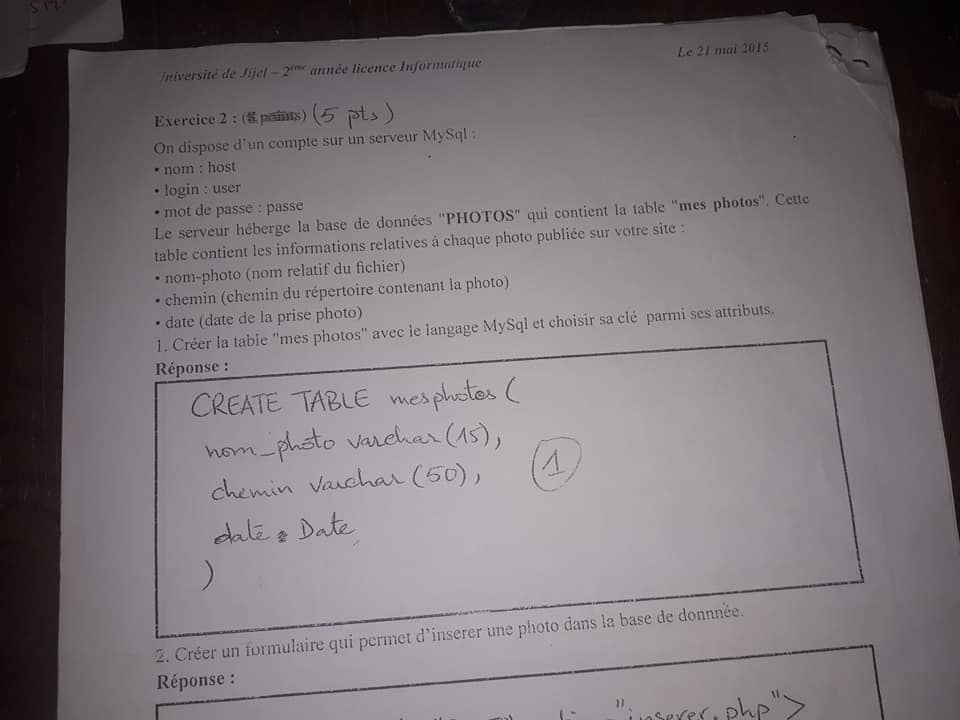 Université de Jijel – 2ème année licence Informatique
Le 21 mai 2015
Exercice 2 : (5 pts)
On dispose d'un compte sur un serveur MySql :
• nom : host
• login : user
• mot de passe : passe
Le serveur héberge la base de données "PHOTOS" qui contient la table "mes photos". Cette
table contient les informations relatives à chaque photo publiée sur votre site :
• nom-photo (nom relatif du fichier)
• chemin (chemin du répertoire contenant la photo)
• date (date de la prise photo)
1. Créer la table "mes photos" avec le langage MySql et choisir sa clé parmi ses attributs.
Réponse :
CREATE TABLE mesphotos (
nom_photo varchar(15),
chemin varchar(50),
1
date Date
)
2. Créer un formulaire qui permet d'inserer une photo dans la base de donnnée.
Réponse :
"inserer.php">